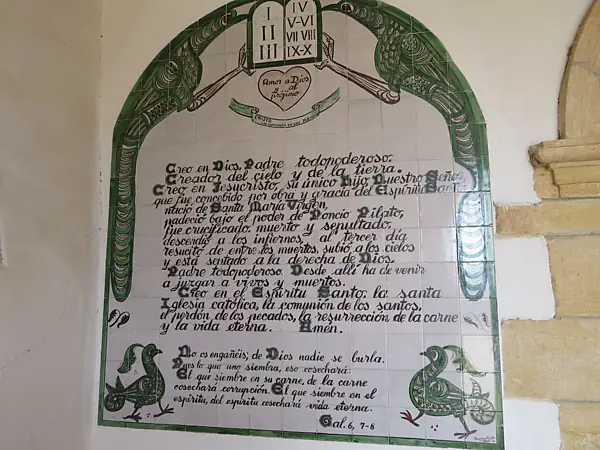 I
II
III
IV
V-VI
VII VIII
IX-X
Amor a Dios
y al
prójimo
Creo en Dios, Padre todopoderoso,
Creador del cielo y de la tierra.
Creo en Jesucristo, su único Hijo, Nuestro Señor,
que fue concebido por obra y gracia del Espíritu Santo,
nació de Santa María Virgen,
padeció bajo el poder de Poncio Pilato,
fue crucificado, muerto y sepultado,
descendió a los infiernos, al tercer día
resucitó de entre los muertos, subió a los cielos
y está sentado a la derecha de Dios,
Padre todopoderoso. Desde allí ha de venir
a juzgar a vivos y muertos.
Creo en el Espíritu Santo, la santa
Iglesia católica, la comunión de los santos,
el perdón de los pecados, la resurrección de la carne
y la vida eterna. Amén.
No os engañéis; de Dios nadie se burla.
Pues lo que uno siembra, eso cosechará:
El que siembre en su carne, de la carne
cosechará corrupción. El que siembre en el
espíritu, del espíritu cosechará vida eterna.
Gal. 6, 7-8